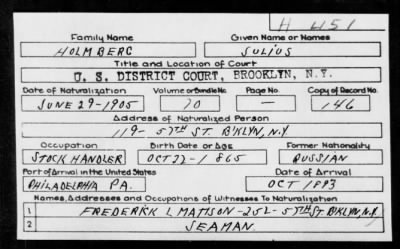 H 451
Family Name Given Name or Names
HOLMBERG SULIUS
Title and Location of Court
U. S. DISTRICT COURT, BROOKLYN, N.Y.
Date of Naturalization Volume or Bundle No. Page No. Copy of Record No.
JUNE 29-1905 70 — 146
Address of Naturalized Person
119- 57TH ST. B'KLYN, N.Y.
Occupation Birth Date or Age Former Nationality
STOCK HANDLER OCT 22-1865 RUSSIAN
Port of Arrival in the United States Date of Arrival
PHILADELPHIA PA. OCT 1893
Names, Addresses and Occupations of Witnesses To Naturalization
1 FREDERICK L MATTSON-252-57TH ST B'KLYN, N.Y.
2 SEAMAN.